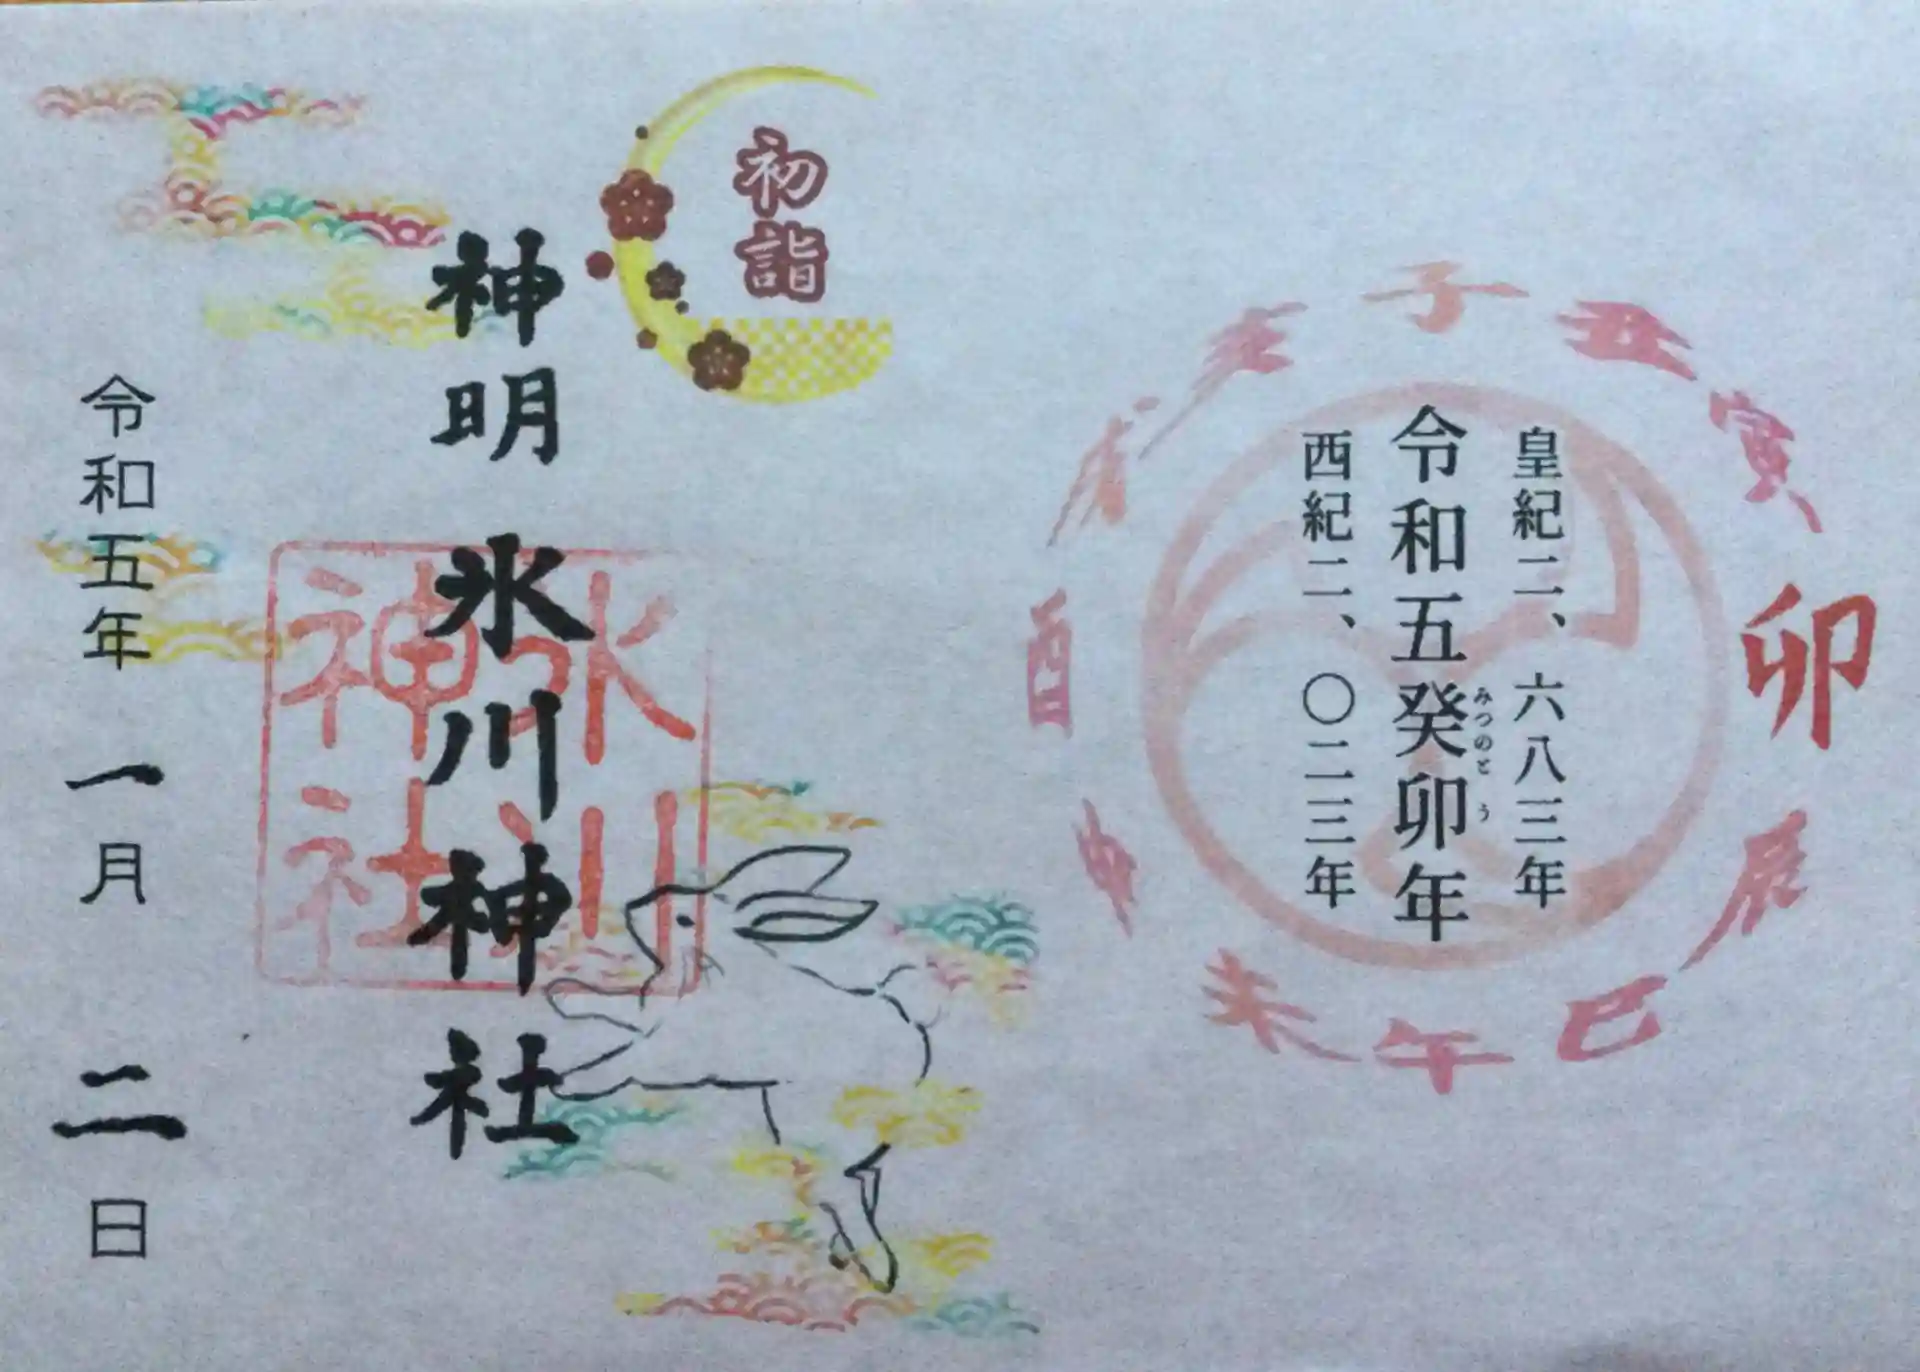 子
丑
寅
卯
辰
巳
午
未
申
酉
戌
亥
皇紀二、六八三年
令和五癸卯年
みつのと う
西紀二、〇二三年
初詣
神明 氷川神社
氷川
神社
令和五年 一月 二日